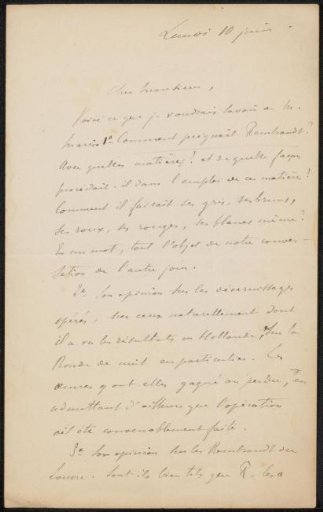 Lundi 10 juin.
Cher Monsieur,
Voici ce que je voudrais savoir de M.
Maris 1º Comment peignait Rembrandt?
Avec quelles matières? et de quelle façon
procédait-il dans l'emploi de ces matières?
Comment il faisait ses gris, ses bruns,
ses roux, ses rouges, ses blancs même?
En un mot, tout l'objet de notre conver-
sation de l'autre jour.
2º Son opinion sur les dévernissages
opérés, sur ceux naturellement dont
il a vu les résultats en Hollande, sur la
Ronde de nuit en particulier. Ces
œuvres y ont elles gagné ou perdu, en
admettant d'ailleurs que l'opération
ait été convenablement faite.
3º Son opinion sur les Rembrandt du
Louvre. Sont ils bien tels que R. les a